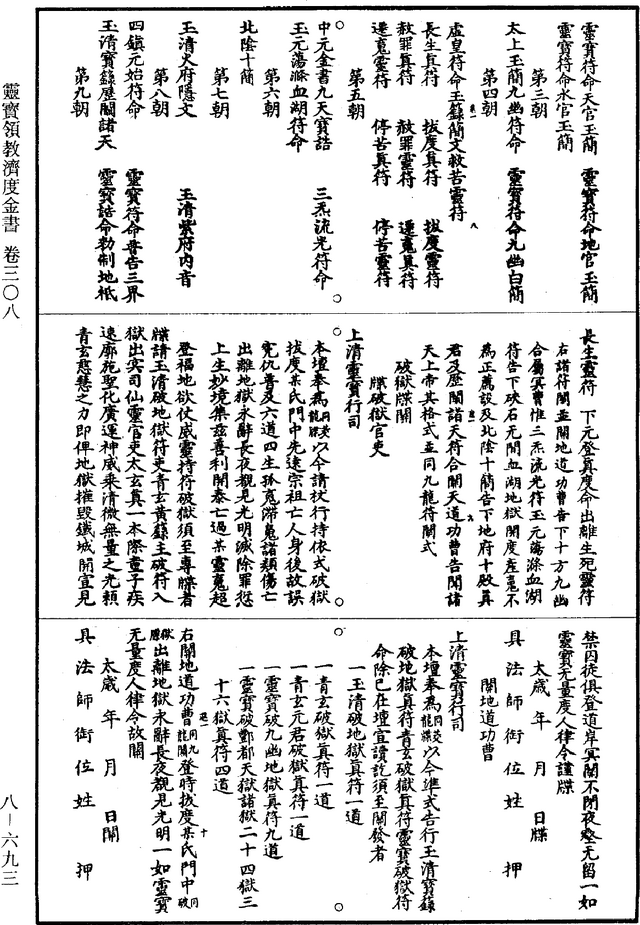 靈寶符命天官玉簡　靈寶符命地官玉簡
靈寶符命水官玉簡
第三朝
太上玉簡九幽符命　靈寶符命九幽白簡
第四朝
虛皇符命玉籙簡文救苦靈符
長生真符　拔度真符　拔度靈符
赦罪真符　赦罪靈符　還魂真符
還魂靈符　停苦真符　停苦靈符
第五朝
中元金書九天寶誥　三炁流光符命
玉元蕩滌血湖符命
第六朝
北陰十簡
第七朝
玉清火府隱文　玉清紫府內音
第八朝
四鎮元始符命　靈寶符命普告三界
玉清寶籙歷關諸天　靈寶誥命勑制地祇
第九朝
長生靈符　下元登真度命出離生死靈符
右諸符關並關地道功曹告下十方九幽
合屬冥曹惟三炁流光符玉元蕩滌血湖
符告下硤石无間血湖地獄關度產魂不
為正薦設及北陰十簡告下地府十殿真
君及歷關諸天符合關天道功曹告聞諸
天上帝其格式並同九龍符關式
破獄牒關
牒破獄官吏
上清靈寶行司
本壇奉為同發龍牒以今請杖行持依式破獄
拔度某氏門中先遠宗祖亡人身後故誤
冤仇普及六道四生孤魂滯魄諸類傷亡
出離地獄永辭長夜覩見光明滅除罪愆
上生妙境集茲善利開泰亡過某靈魂超
登福地欲仗威靈持符破獄須至專牒者
牒請玉清破地獄符吏青玄黃籙主破符入
獄出冥司仙靈官吏太玄真一本際童子疾
速廓施聖化廣運神威乘清微無量之光賴
青玄慈慧之力即俾地獄摧毀鐵城開宣見
禁囚徒俱登道岸冥關不閉夜壑无留一如
靈寶无量度人律令謹牒
太歲　年　月　日牒
具法師銜位姓　押
關地道功曹
上清靈寶行司
本壇奉為同發龍牒以今準式告行玉清寶籙
破地獄真符青玄破獄真符靈寶破獄符
命除已在壇宣讀訖須至關發者
一玉清破地獄真符一道
一青玄破獄真符一道
一青玄元君破獄真符一道
一靈寶破九幽地獄真符九道
一靈寶破酆都天獄諸獄二十四獄三
十六獄真符四道
右關地道功曹同九龍關登時拔度某氏門中同破獄牒
出離地獄永辭長夜覩見光明一如靈寶
无量度人律令故關
太歲　年　月　日關
具法師銜位姓　押
靈寶領教濟度金書　卷三〇八
八－六九三